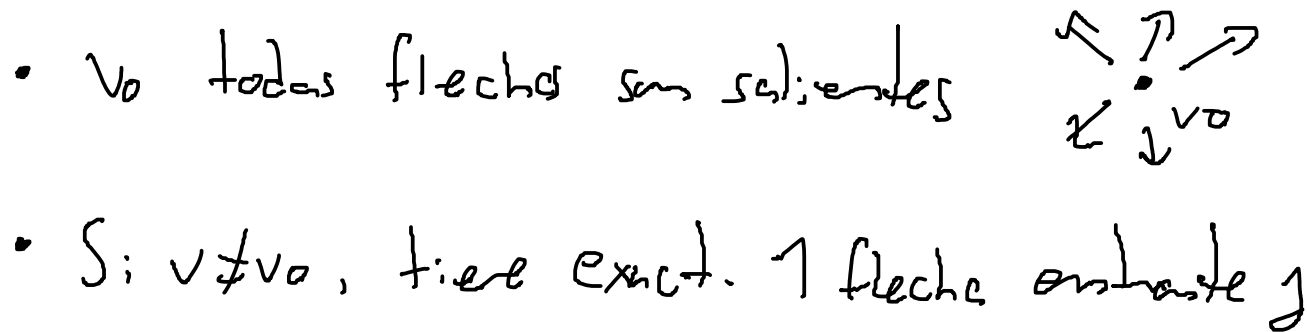 • v₀ todas flechas son salientes
v₀
• Si v≠v₀, tiene exact. 1 flecha entrante y